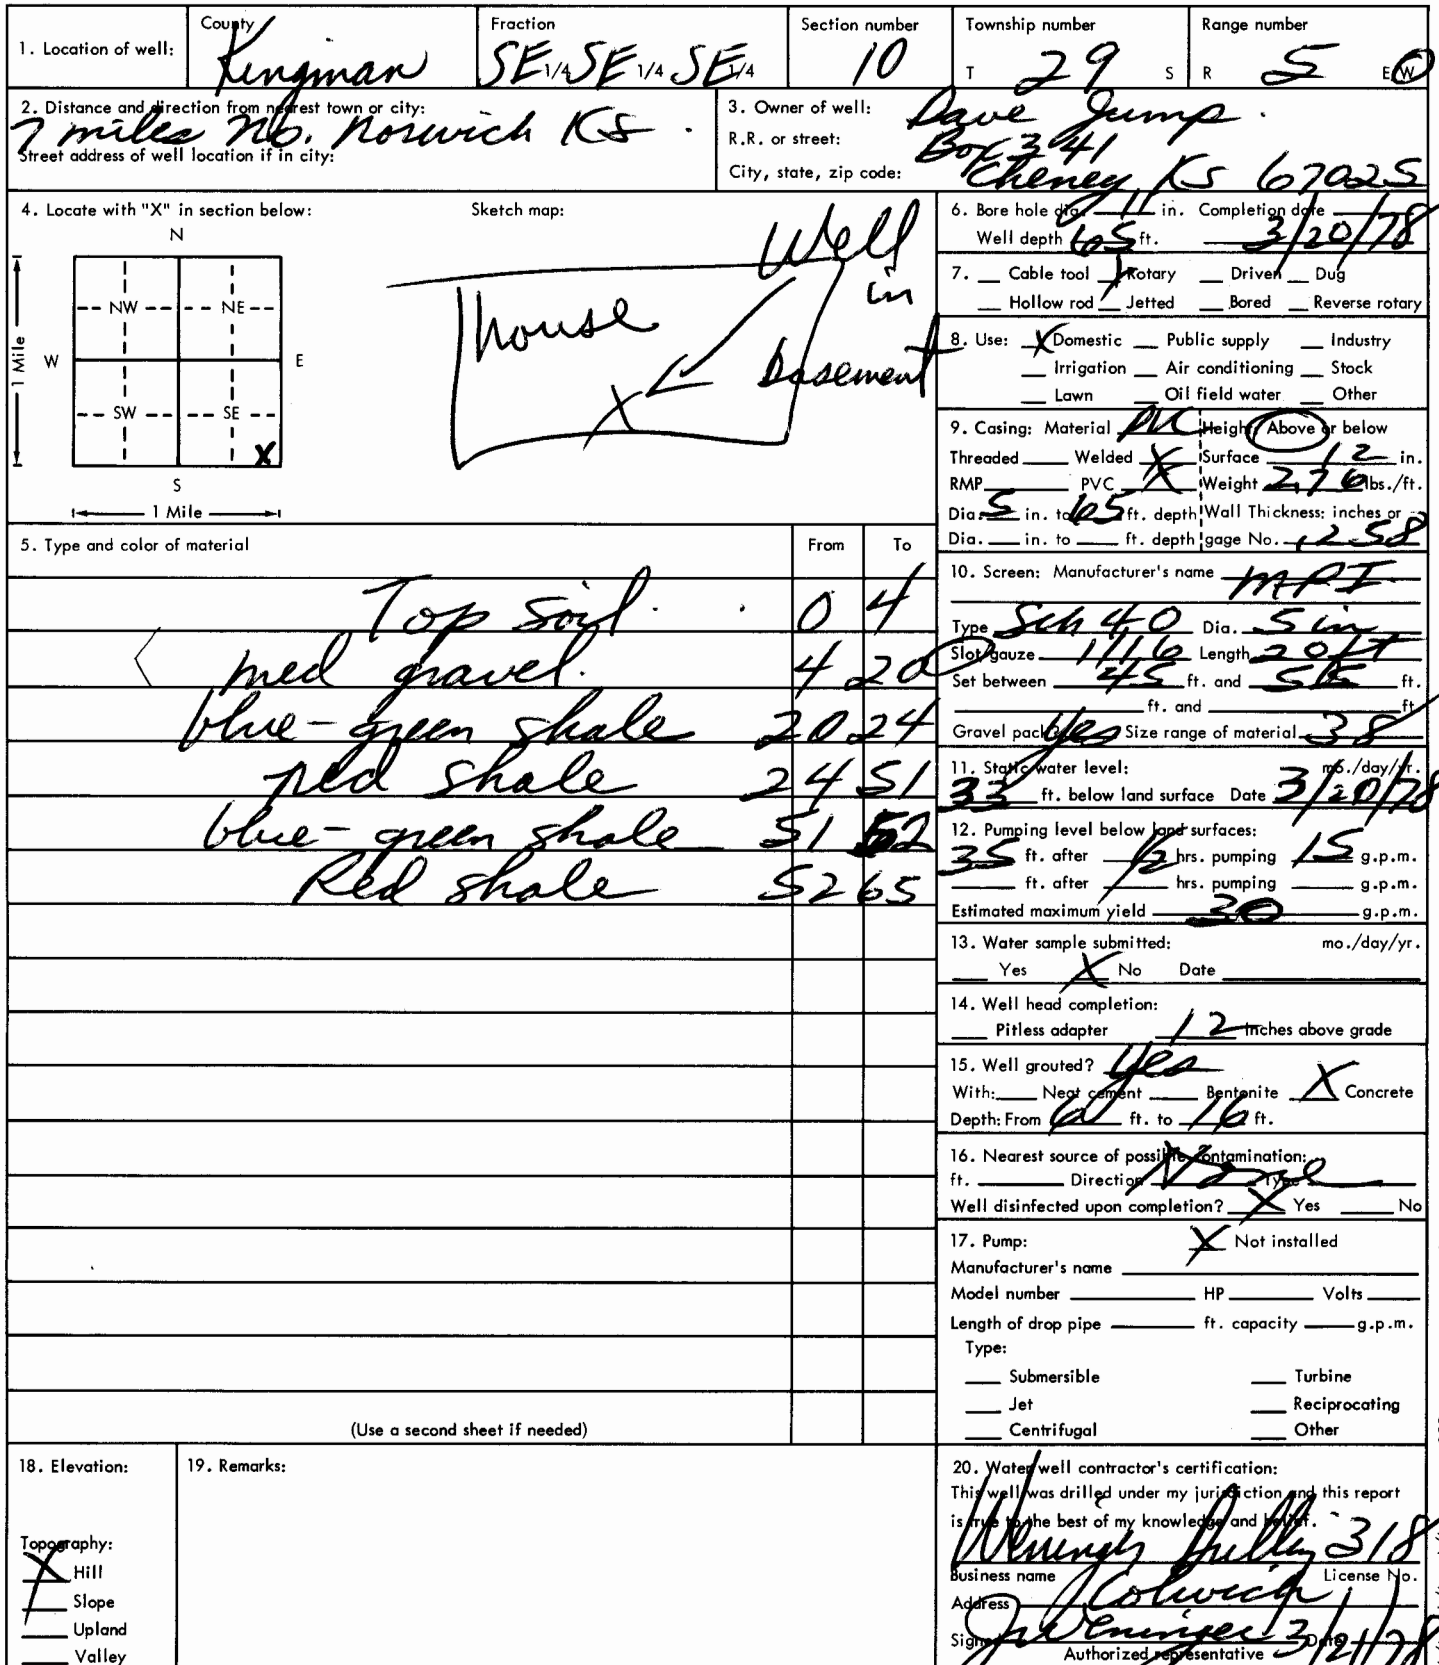 1. Location of well:
County
Kingman
Fraction
SE 1/4 SE 1/4 SE 1/4
Section number
10
Township number
T 29 S
Range number
R 5 E W
2. Distance and direction from nearest town or city:
7 miles No. Norwich KS.
Street address of well location if in city:
3. Owner of well: Dave Jump.
R.R. or street: Box 341
City, state, zip code: Cheney, KS 67025
4. Locate with "X" in section below:
N
NW NE
W E
SW SE
X
S
1 Mile
1 Mile
Sketch map:
Well
in
basement
house
X
5. Type and color of material From To
Top soil. 0 4
med gravel. 4 20
blue-green shale 20 24
red shale 24 51
blue-green shale 51 52
Red shale 52 65
(Use a second sheet if needed)
6. Bore hole dia. 11 in. Completion date
Well depth 65 ft. 3/20/78
7. Cable tool Rotary Driven Dug
Hollow rod Jetted Bored Reverse rotary
8. Use: X Domestic Public supply Industry
Irrigation Air conditioning Stock
Lawn Oil field water Other
9. Casing: Material PVC Height: Above or below
Threaded Welded X Surface 12 in.
RMP PVC X Weight 2.76 lbs./ft.
Dia. 5 in. to 65 ft. depth Wall Thickness: inches or
Dia. in. to ft. depth gage No. .258
10. Screen: Manufacturer's name MPI
Type Sch 40 Dia. 5 in
Slot/gauze 1/16 Length 20 ft
Set between 45 ft. and ft.
ft. and ft.
Gravel pack yes Size range of material 38
11. Static water level: mo./day/yr.
33 ft. below land surface Date 3/20/78
12. Pumping level below land surfaces:
35 ft. after 1/2 hrs. pumping 15 g.p.m.
ft. after hrs. pumping g.p.m.
Estimated maximum yield 30 g.p.m.
13. Water sample submitted: mo./day/yr.
Yes X No Date
14. Well head completion:
Pitless adapter 12 Inches above grade
15. Well grouted? Yes
With: Neat cement Bentonite X Concrete
Depth: From 6 ft. to 16 ft.
16. Nearest source of possible contamination:
ft. Direction None Type
Well disinfected upon completion? X Yes No
17. Pump: X Not installed
Manufacturer's name
Model number HP Volts
Length of drop pipe ft. capacity g.p.m.
Type:
Submersible Turbine
Jet Reciprocating
Centrifugal Other
18. Elevation:
Topography:
X Hill
Slope
Upland
Valley
19. Remarks:
20. Water well contractor's certification:
This well was drilled under my jurisdiction and this report
is true to the best of my knowledge and belief.
318
Business name License No.
Address Colwich
Signed Weninger Date 3/21/78
Authorized representative